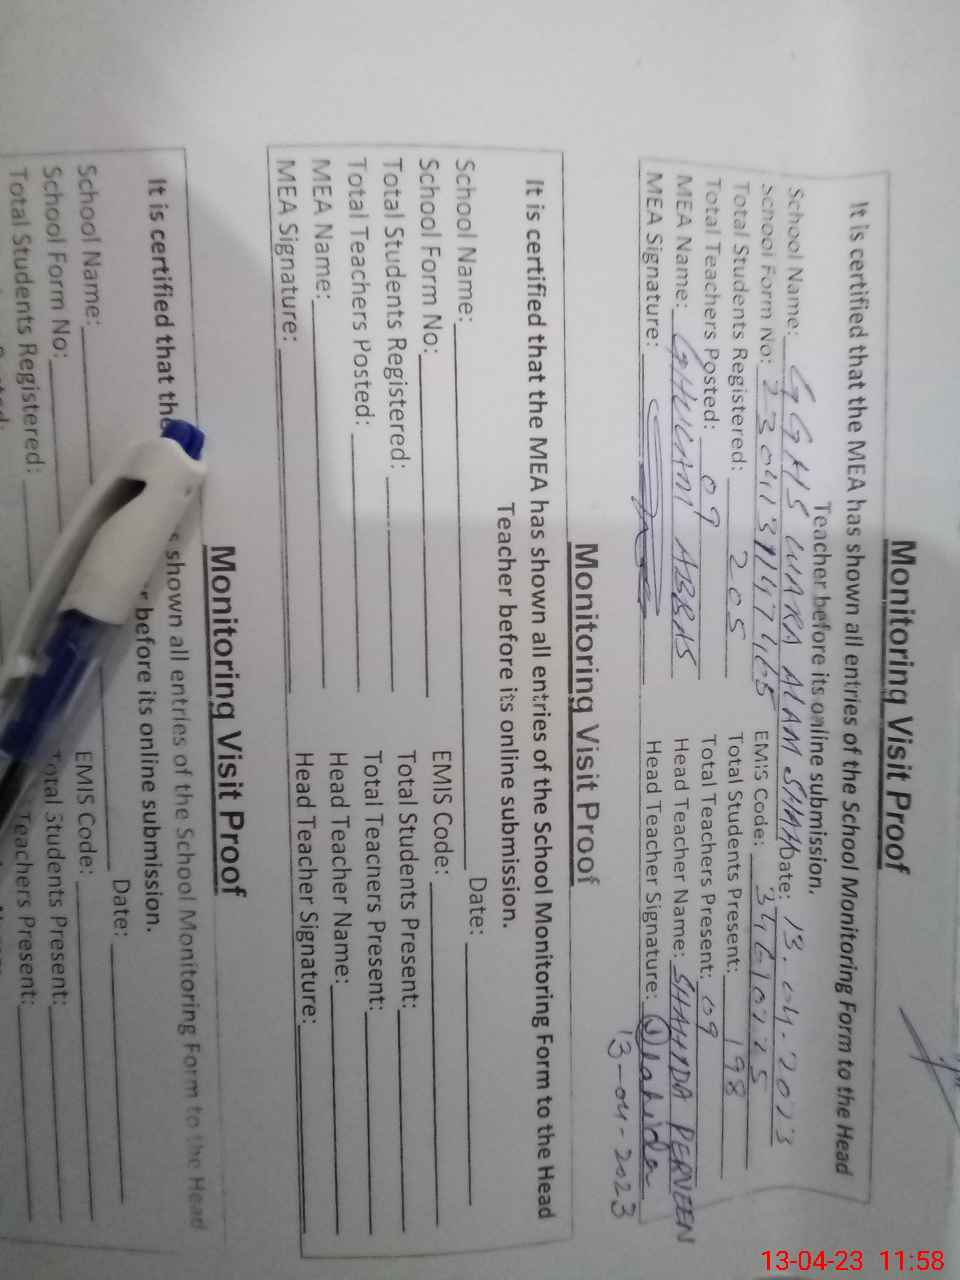 Monitoring Visit Proof
It is certified that the MEA has shown all entries of the School Monitoring Form to the Head
Teacher before its online submission.
School Name: GGHS WARA ALAM SHAH Date: 13.04.2023
School Form No: EMIS Code:
Total Students Registered: 205 Total Students Present: 198
Total Teachers Posted: 09 Total Teachers Present: 09
MEA Name: GHULAM ABBAS Head Teacher Name: SHAHIDA PERVEEN
MEA Signature: Head Teacher Signature: Shahida
13-04-2023
Monitoring Visit Proof
It is certified that the MEA has shown all entries of the School Monitoring Form to the Head
Teacher before its online submission.
School Name: Date:
School Form No: EMIS Code:
Total Students Registered: Total Students Present:
Total Teachers Posted: Total Teachers Present:
MEA Name: Head Teacher Name:
MEA Signature: Head Teacher Signature:
Monitoring Visit Proof
It is certified that the shown all entries of the School Monitoring Form to the Head
before its online submission.
School Name: Date:
School Form No: EMIS Code:
Total Students Registered: Total Students Present:
Teachers Present:
13-04-23 11:58